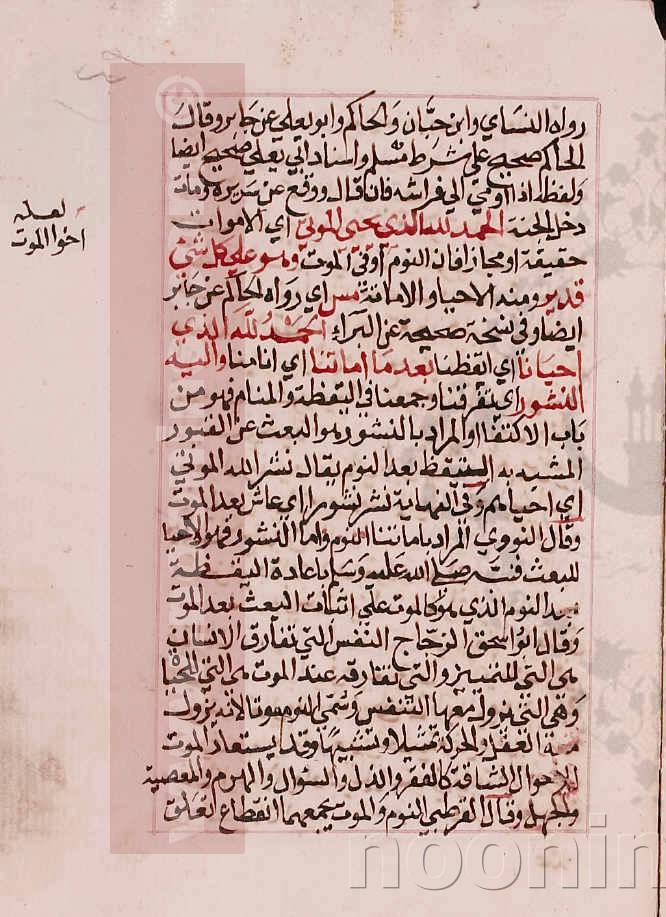 رواه النساي وابن حبان والحاكم وابو يعلي عن جابر وقال
الحاكم صحيح علي شرط مسلم واسناد ابي يعلي صحيح ايضا
ولفظه اذا اوي الي فراشه فان قال ووقع عن سريره ومات
دخل الجنة الحمد لله الذي يحيي الموتي اي الاموات
حقيقة او مجازا فان النوم اخو الموت وهو علي كل شئ
قدير ومنه الاحيا والاماتة مس اي رواه الحاكم عن جابر
ايضا وفي نسخة صحيحة عن البراء الحمد لله الذي
احيانا اي ايقظنا بعد ما اماتنا اي انامنا واليه
النشور اي تفرقنا وجمعنا في اليقظة والمنام فهو من
باب الاكتفا او المراد بالنشور هو البعث عن القبور
المشبه به التيقظ بعد النوم يقال نشر الله الموتي
اي احياهم وفي النهاية نشر نشورا اي عاش بعد الموت
وقال النووي المراد باماتنا النوم واما النشور فهو الاحيا
للبعث فنبه صلي الله عليه وسلم باعادة اليقظة
بعد النوم الذي هو كالموت علي اثبات البعث بعد الموت
وقال ابو اسحق الزجاج النفس التي تفارق الانسان
هي التي للتمييز والتي تفارقه عند الموت هي التي للحياة
وهي التي يزول معها التنفس وسمي النوم موتا لانه يزول
منه العقل والحركة تمثيلا وتشبيها وقد يستعار الموت
للاحوال الشاقة كالفقر والذل والسؤال والهرم والمعصية
والجهل وقال القرطبي النوم والموت يجمعهما انقطاع تعلق
لعله
اخو الموت
noonin